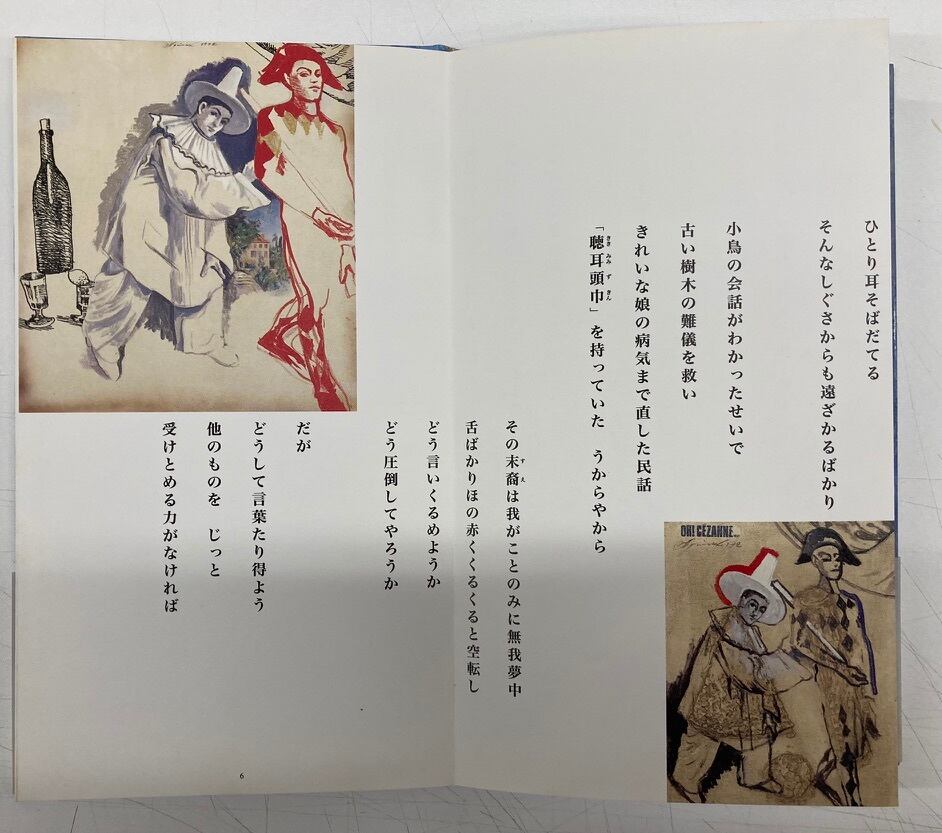 ひとり耳そばだてる
そんなしぐさからも遠ざかるばかり
小鳥の会話がわかったせいで
古い樹木の難儀を救い
きれいな娘の病気まで直した民話
「聴耳頭巾」を持っていた うからやから
その末裔は我がことのみに無我夢中
舌ばかりほの赤くくるくると空転し
どう言いくるめようか
どう圧倒してやろうか
だが
どうして言葉たり得よう
他のものを じっと
受けとめる力がなければ
6
OH! CEZANNE
1992